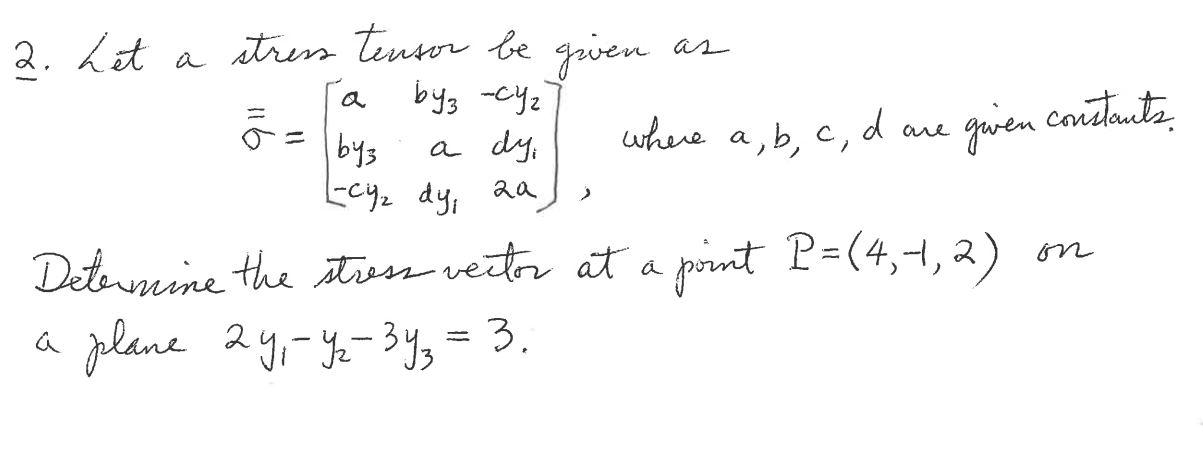 2. Let a stress tensor be given as
σ̿ = [a by₃ -cy₂
by₃ a dy₁
-cy₂ dy₁ 2a], where a, b, c, d are given constants.
Determine the stress vector at a point P=(4,-1,2) on
a plane 2y₁-y₂-3y₃ = 3.